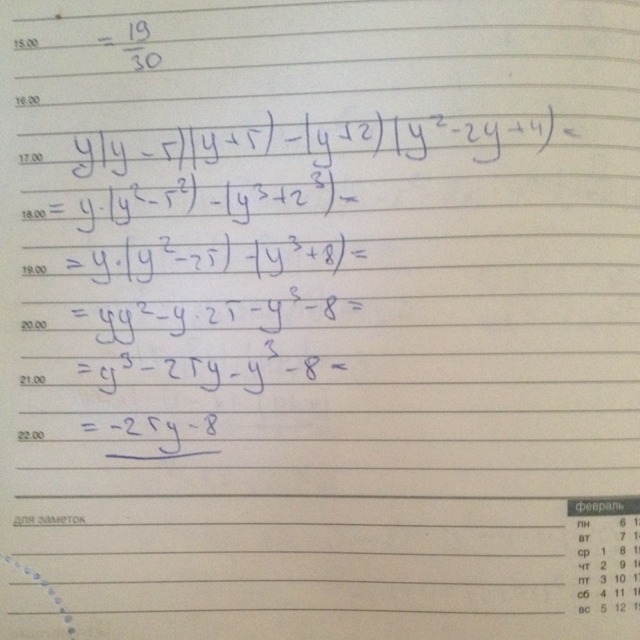 15.00 = 19/30
16.00
17.00 y(y-5)(y+5)-(y+2)(y²-2y+4)=
18.00 = y·(y²-5²)-(y³+2³)=
19.00 = y·(y²-25)-(y³+8)=
20.00 = yy²-y·25-y³-8=
21.00 = y³-25y-y³-8=
22.00 = -25y-8
для заметок
февраль
пн 6 1
вт 7 1
ср 1 8 1
чт 2 9 1
пт 3 10 1
сб 4 11 1
вс 5 12 1